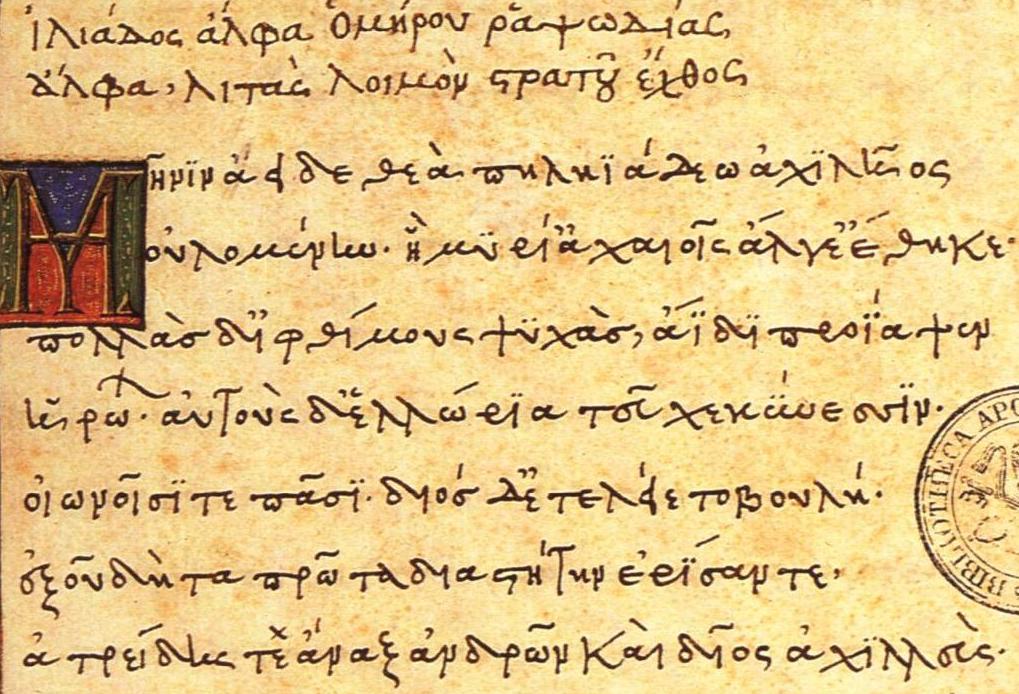 ἰλιάδος ἄλφα ὁμήρου ῥαψωδίας
ἄλφα, λιτὰς λοιμὸν στρατοῦ ἔχθος
Μῆνϊν ἄειδε θεὰ πηληϊάδεω ἀχϊλῆος
οὐλομένην· ἣ μϋρί ἀχαιοῖς ἄλγε ἔθηκε·
πολλὰς δ ἰφθίμους ψϋχὰς, ἄϊδϊ προΐαψεν
ἡρώων· αὐτοὺς δ ἑλλώρϊα τεῦχε κύνεσσϊν·
οἰωνοῖσϊ τε πᾶσϊ· διὸς δ ἐτελείετο βουλή·
ἐξ οὗ δὴ τα πρῶτα διαστήτην ἐρίσαντε,
ἀτρείδης τε ἄναξ ἀνδρῶν καὶ δῖος ἀχϊλλεὺς·
BIBLIOTHECA APO